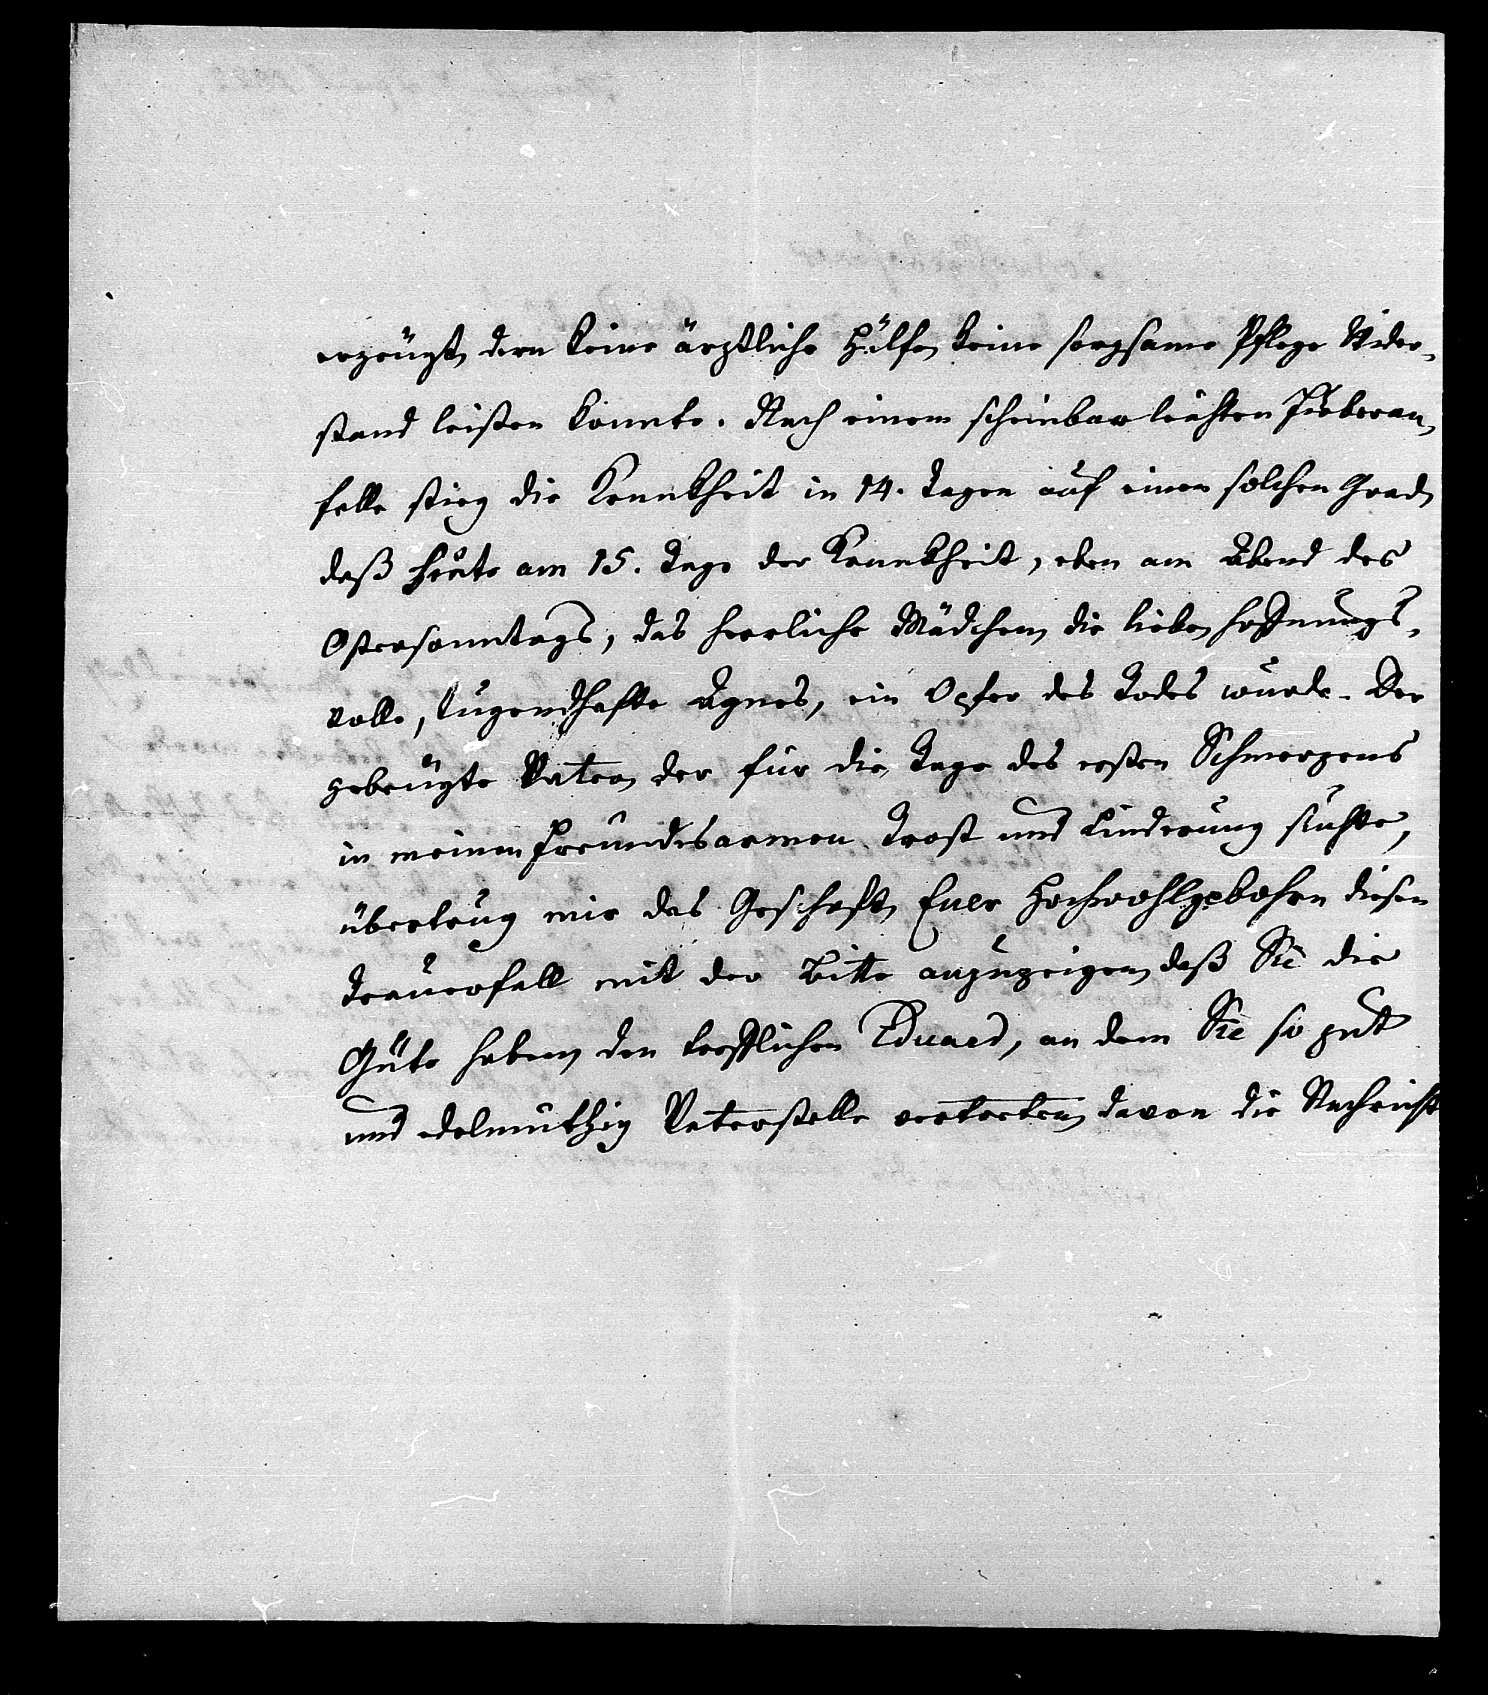 erzeugt, dem keine ärztliche Hülfe, keine sorgsame Pflege Wider-
stand leisten konnte. Nach einem scheinbar leichten Fieberan-
falle stieg die Krankheit in 14. Tagen auf einen solchen Grad,
daß heute am 15. Tage der Krankheit, eben am Abend des
Ostersonntags, das herrliche Mädchen, die liebe, hoffnungs-
volle, tugendhafte Agnes, ein Opfer des Todes wurde. Der
gebeugte Vater, der für die Tage des ersten Schmerzens
in meinen Freundesarmen Trost und Linderung suchte,
übertrug mir das Geschäft, Euer Hochwohlgebohrn diesen
Trauerfall mit der Bitte anzuzeigen, daß Sie die
Güte haben, den trefflichen Eduard, an dem Sie so gut
und edelmüthig Vaterstelle vertreten, davon die Nachricht